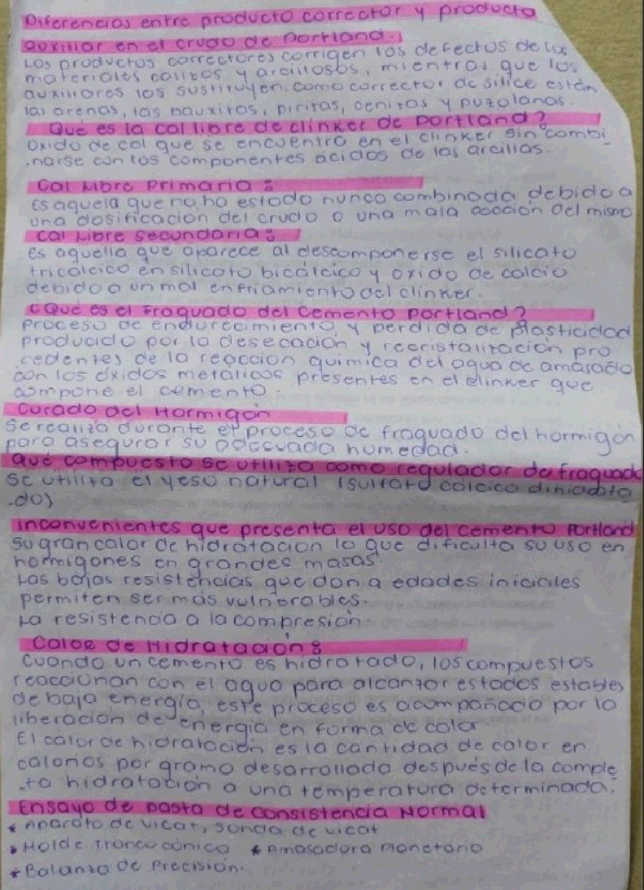 Diferencias entre producto corrector y producto
auxiliar en el crudo de Portland.
Los productos correctores corrigen los defectos de los
materiales calizos y arcillosos, mientras que los
auxiliares los sustituyen. como corrector de silice están
las arenas, las bauxitas, piritas, cenizas y puzolanas.
Que es la cal libre de clinker de portland?
Oxido de cal que se encuentra en el clinker sin combi
.narse con los componentes acidos de las arcillas.
Cal Libre Primaria:
Es aquela que no ha estado nunca combinada debido a
una dosificacion del crudo o una mala cocción del mismo
Cal Libre Secundaria:
es aquella que aparece al descomponerse el silicato
tricalcico en silicato bicálcico y oxido de calcio
debido a un mal enfriamiento del clinker.
¿Que es el Fraguado del Cemento portland?
Proceso de endurecimiento y perdida de plasticidad
producido por la desecación y recristalización pro
.cedentes de la reaccion quimica del agua de amasado
con los óxidos metalicos presentes en el clinker que
compone el cemento.
Curado del Hormigon
Se realiza durante el proceso de fraguado del hormigón
para asegurar su adecuada humedad.
Qué compuesto se utiliza como regulador de fraguado
Se utiliza el yeso natural (sulfato calcico dihidrata
.do)
Inconvenientes que presenta el uso del cemento Portland
Su gran calor de hidratacion lo que dificulta su uso en
hormigones en grandes masas
Las bajas resistencias que dan a edades iniciales
permiten ser mas vulnerables.
La resistencia a la compresión.
Calor de Hidratación:
Cuando un cemento es hidratado, los compuestos
reaccionan con el agua para alcanzar estados estables
de baja energia, este proceso es acompañado por la
liberación de energia en forma de calor.
El calor de hidratación es la cantidad de calor en
calorios por gramo desarrollada después de la comple
.ta hidratación a una temperatura determinada.
Ensayo de pasta de consistencia Normal
* Aparato de vicat, sonda de vicat
* Molde Troncocónico * Amasadora planetaria
* Balanza de Precisión.